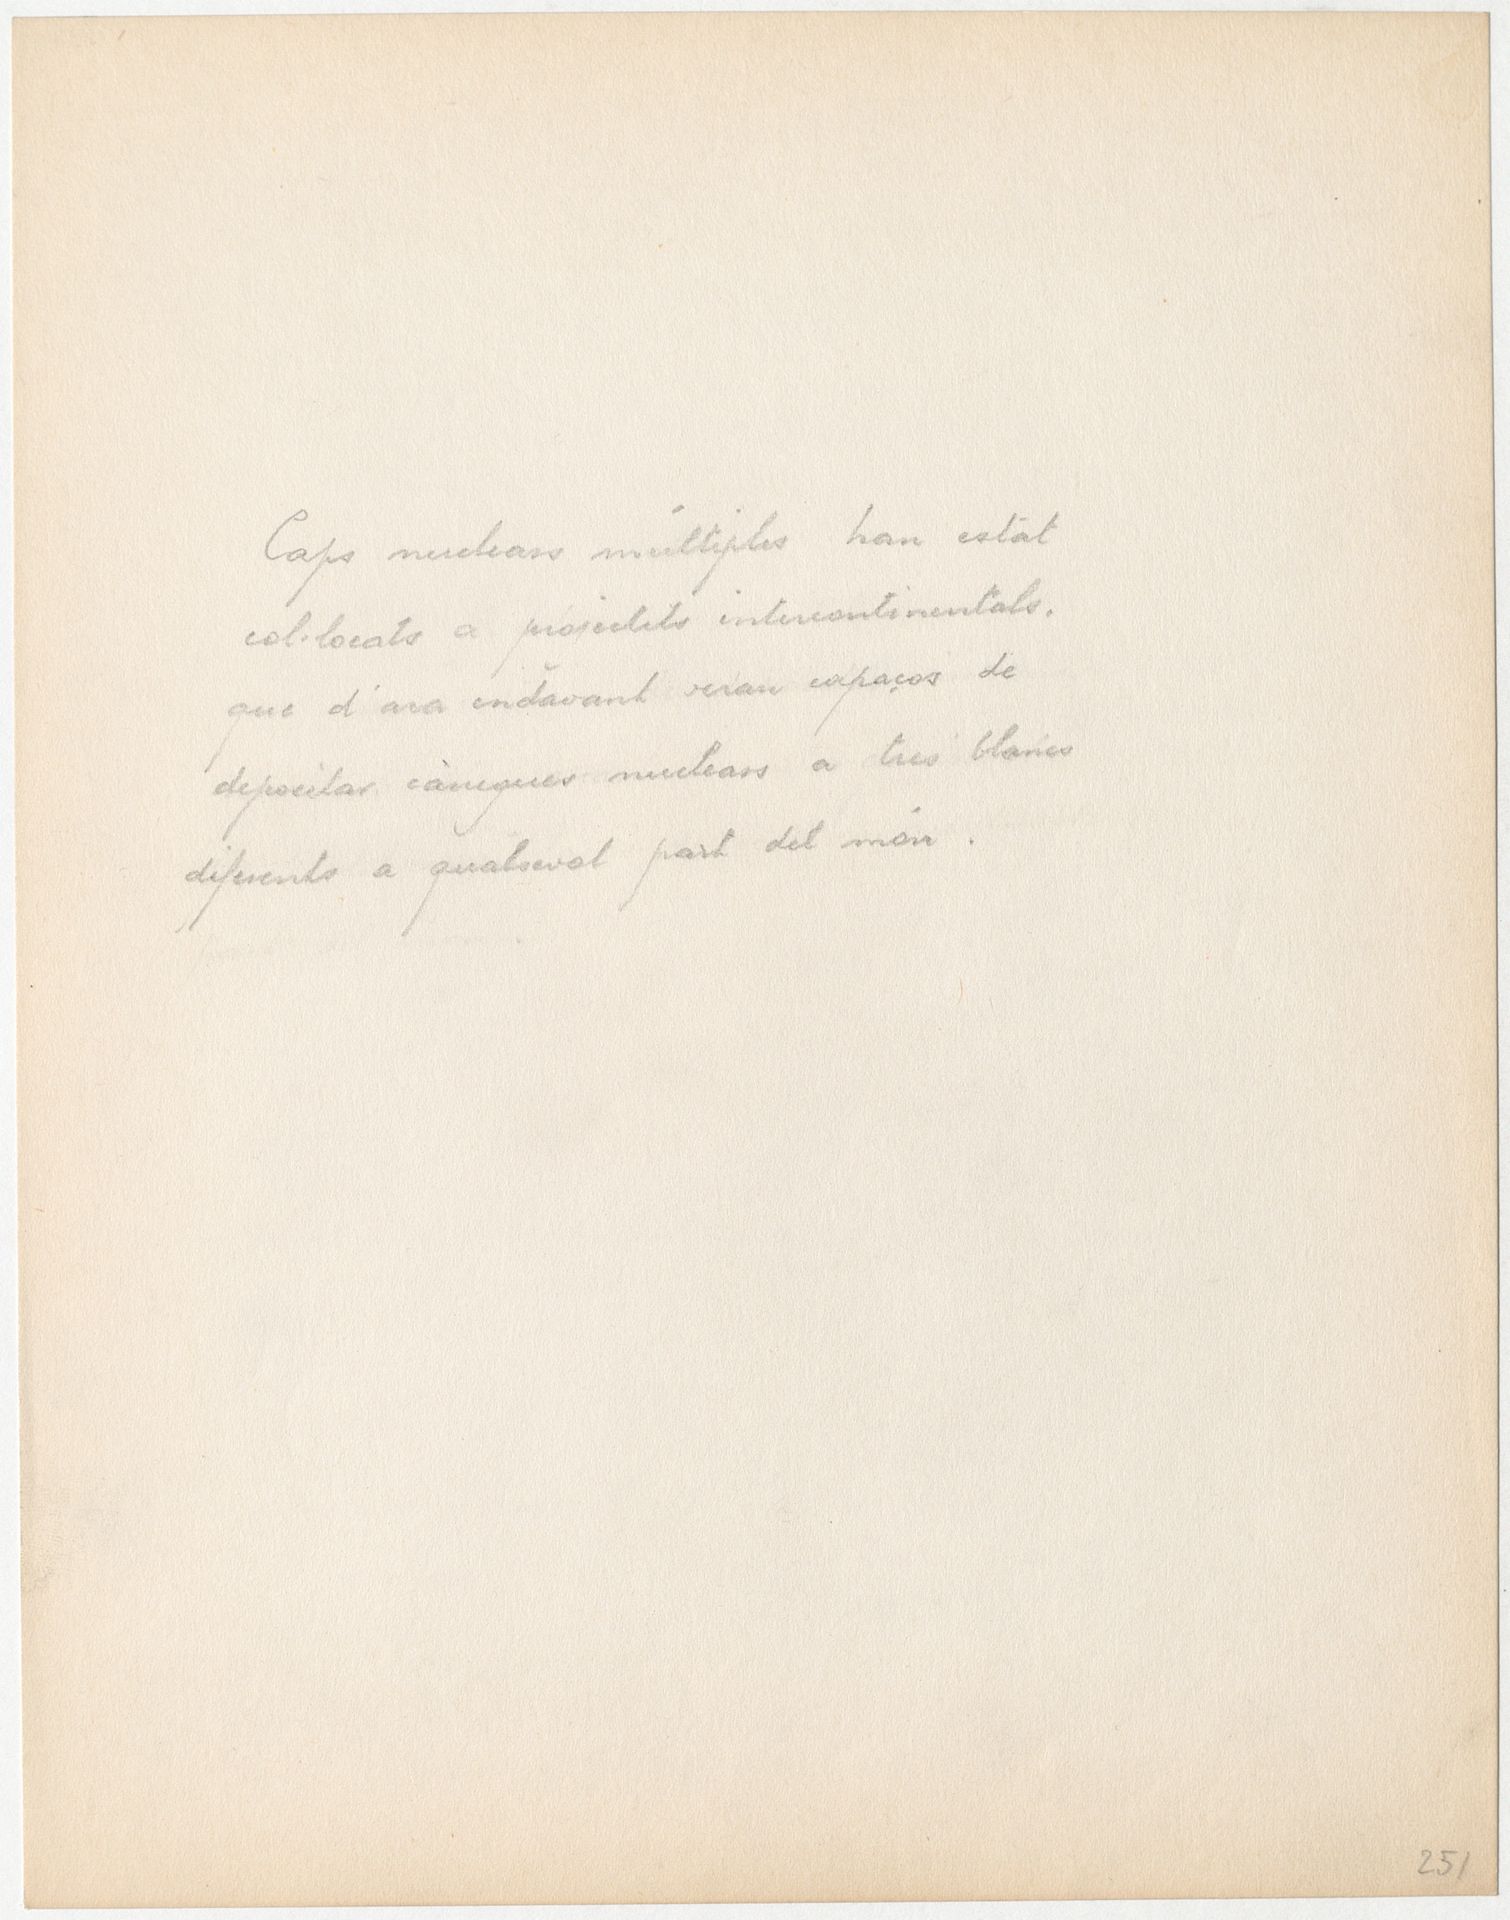 Caps nuclears múltiples han estat
col·locats a projectils intercontinentals.
que d'ara endavant seran capaços de
depositar càrregues nuclears a tres blancs
diferents a qualsevol part del món.
251